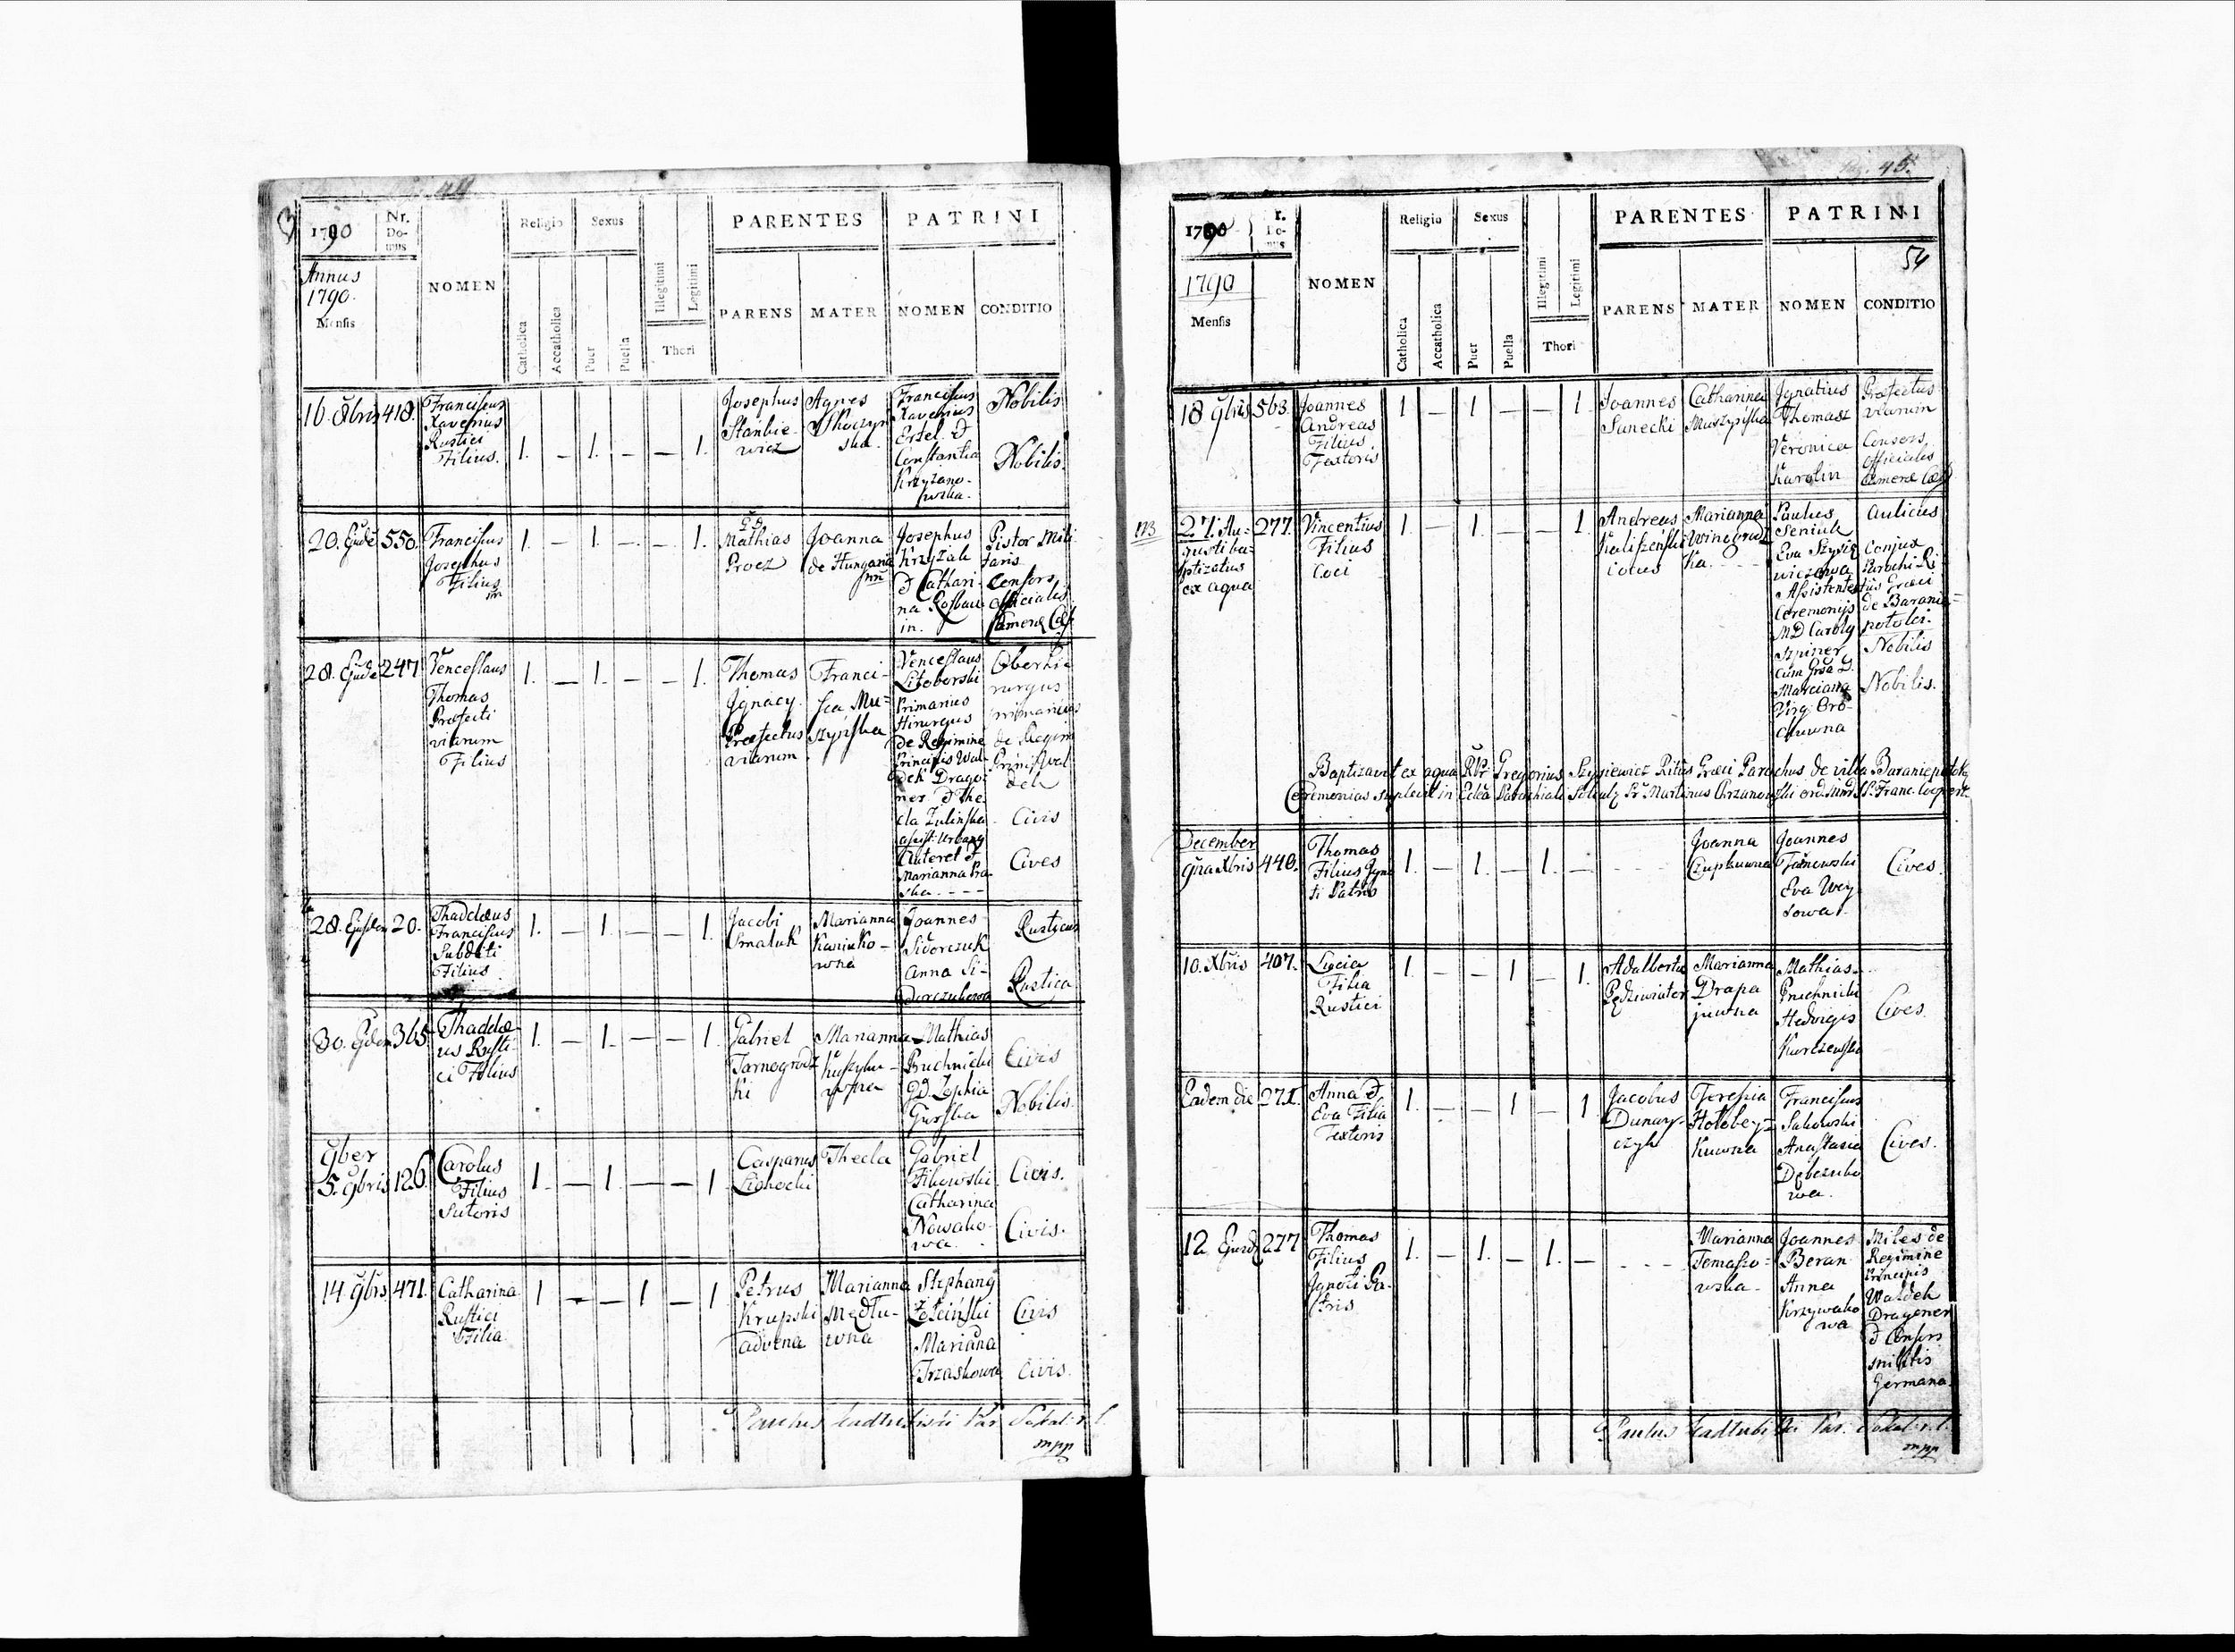 44
1790
Nr.
Do-
mus
NOMEN
Religio
Sexus
PARENTES
PATRINI
Annus
1790.
Mensis
Catholica
Accatholica
Puer
Puella
Illegitimi
Legitimi
Thori
PARENS
MATER
NOMEN
CONDITIO
16. 8bris
418.
Franciscus
Xaverius
Rustici
Filius.
1.
—
1.
—
—
1.
Josephus
Stankie-
wicz
Agnes
Skoczyn
ska.
Franciscus
Xaverius
Ertel. &
Constantia
Krzyzano-
wska.
Nobilis
Nobilis.
20. Ejusd
550.
Franciscus
Josephus
Filius
1.
—
1.
—
—
1.
Mathias
Procz
Joanna
de Hungaria
Josephus
Krzyzak
& Cathari-
na Rosbau-
in.
Pistor Mili
taris
Consors
officialis
Cameræ Cæs.
28. Ejusd
247
Venceslaus
Thomas
Præfecti
viarum
Filius
1.
—
1.
—
—
1.
Thomas
Jgnacy.
Præfectus
viarum
Franci-
sca Mu-
szyńska
Venceslaus
Litoborski
Primarius
Hirurgus
de Regimine
Principis Wal-
dek Drago-
ner & The-
cla Zulinska
assist. Urbany
Auteret et
Marianna Pra-
ska - - - -
Oberhi-
rurgus
primarius
de Regim
Princi. Wal
dek
Civis
Cives
28. Ejusdem
20.
Thaddæus
Franciscus
Subditi
Filius
1.
—
1.
—
—
1.
Jacobi
Smaluk
Marianna
Kaniuko-
wna
Joannes
Sidorczuk
Anna Si-
dorczukowa
Rusticus
Rustica
30. Ejdem
365.
Thaddæ-
us Rusti-
ci Filius
1.
—
1.
—
—
1.
Gabriel
Tarnogrodz
ki
Marianna
Mathias
Pruchnicki
GD. Zophia
Gurska
Civis
Nobilis.
9ber
5. 9bris
126.
Carolus
Filius
Sutoris
1.
—
1.
—
—
1
Casparus
Lichocki
Thecla
Gabriel
Fikowski
Catharina
Nowako-
wa.
Civis.
Civis.
14. 9bris
471.
Catharina
Rustici
Filia
1
—
—
1
—
1
Petrus
Krupski
advena
Marianna
Mędlu-
wna
Stephang
Zoteiński
Mariana
Trzaskowa
Civis
Civis.
Paulus Kadlubiski Par. Sokal: r. l.
mpp
45.
54
1790
Nr.
Do-
mus
NOMEN
Religio
Sexus
PARENTES
PATRINI
1790
Mensis
Catholica
Accatholica
Puer
Puella
Illegitimi
Legitimi
Thori
PARENS
MATER
NOMEN
CONDITIO
18 9bris
563.
Joannes
Andreas
Filius
Textoris
1
—
1
—
—
1
Joannes
Sunecki
Catharina
Muszyńska
Jgnatius
Thomasz
Veronica
Karolin
Præfectus
viarum
Consors
officialis
Cameræ Cæs
NB
27. Au-
gusti ba-
ptizatus
ex aqua
277.
Vincentius
Filius
Coci
1
—
1
—
—
1
Andreas
Kaliszeński
cocus
Marianna
Winogrodz
ka. - - -
Paulus
Seniuk
Eva Szysie
wiczowa
Assistentes
Ceremonijs
MD Caroly
Szpiner
cum Grsa D.
Marciana
Virg: Oro-
chuwna
aulicus
Conjux
Parochi Ri-
tus Græci
de Baranie-
potoki.
Nobilis
Nobilis.
Baptizavit ex aqua RDs Gregorius Szysiewicz Ritus Græci Parochus de villa Baraniepotoky
Ceremonias suplevit in Ecla Parochiali Sokal: Fr. Martinus Chrzanowski ord. Min: S. P. Franc. Coopert.
December
9na Xbris
440.
Thomas
Filius Jgno
ti Patris
1.
—
1.
—
1.
—
- - -
Joanna
Czupkuwna
Joannes
Tarnowski
Eva Wey
sowa.
Cives.
10. Xbris
407.
Lucia
Filia
Rustici
1.
—
—
1
—
1.
Adalbertus
Pędziwiater
Marianna
Drapa
juwna
Mathias
Pruchnicki
Hedvigis
Kurczewska
Cives.
Eadem die
271.
Anna &
Eva Filia
Textoris
1.
—
—
1
—
1
Jacobus
Dunay-
czyk
Teressia
Holobeyz
kuwna
Franciscus
Sakowski
Anastasia
Dębczuko
wa.
Cives.
12 Ejusd
277
Thomas
Filius
Jgnoti Pa-
tris
1.
—
1.
—
1.
—
- - -
Marianna
Tomaszo-
wska.
Joannes
Beran
Anna
Krzywako
wa
Miles de
Regimine
Principis
Waldek
Dragoner
& Consors
militis
Germana.
Paulus Kadlubiski Par. Sokal: r. l.
mpp